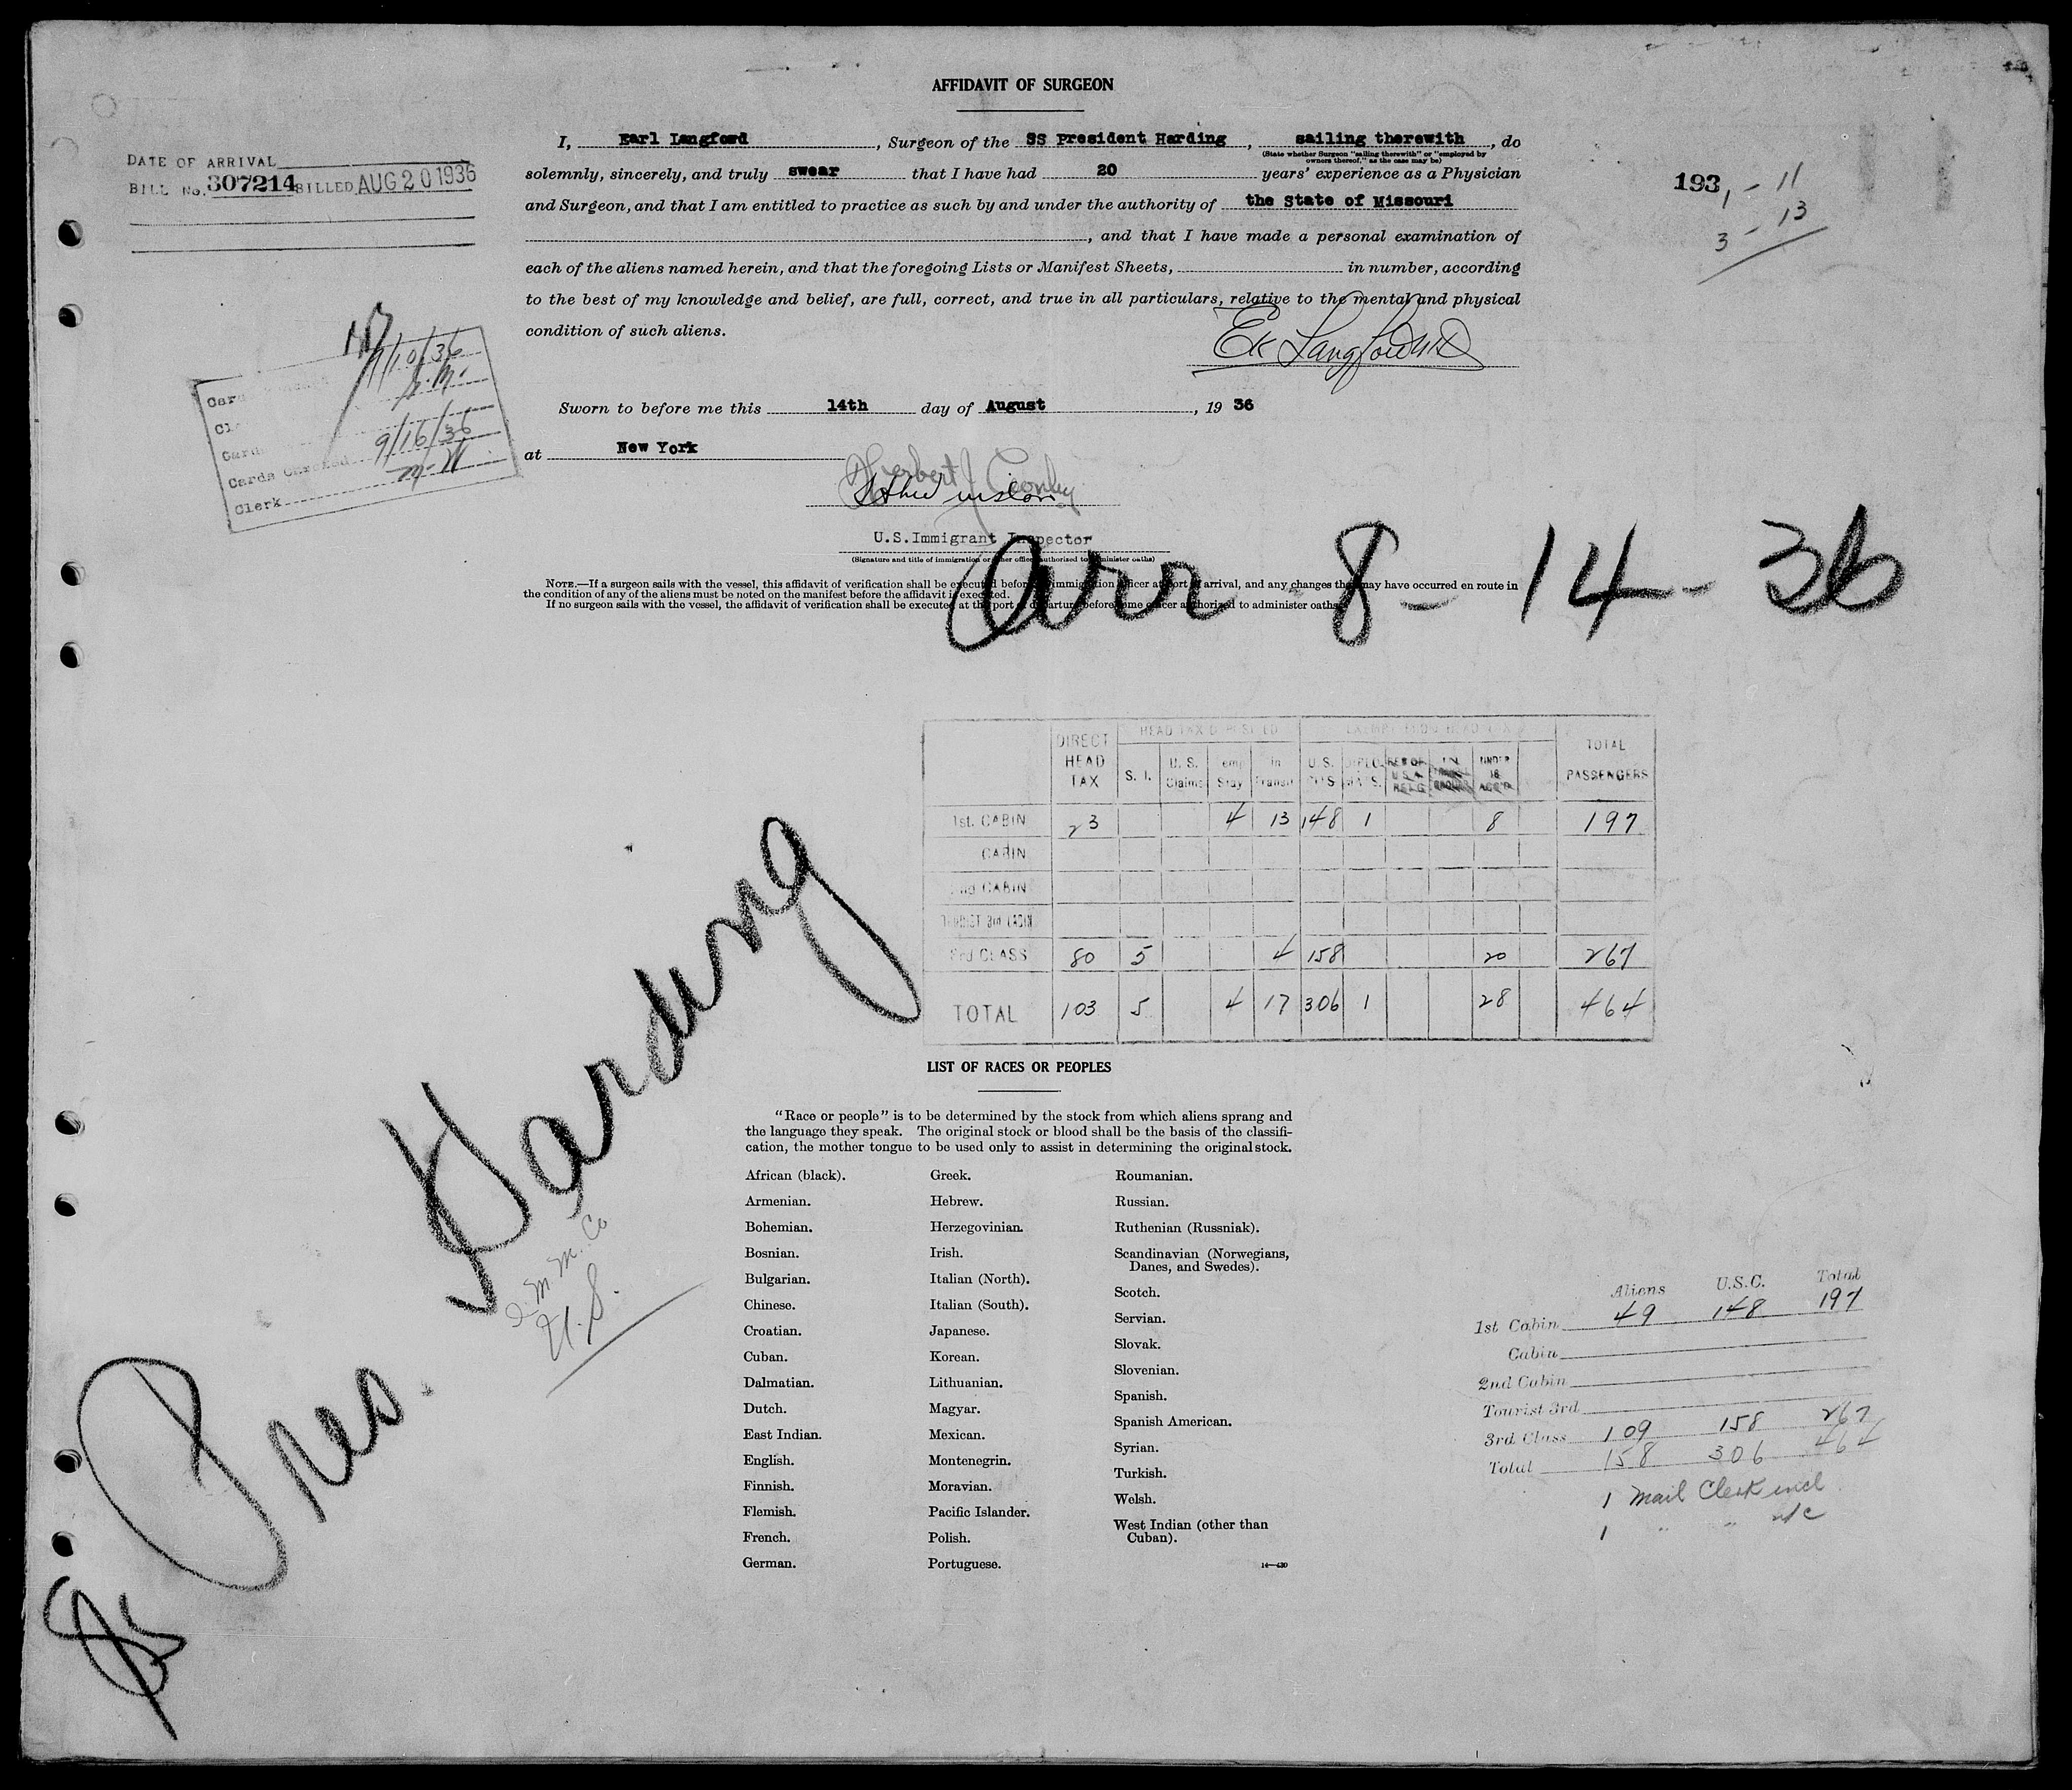 AFFIDAVIT OF SURGEON
I, Earl Langford, Surgeon of the SS President Harding, sailing therewith, do
(State whether Surgeon "sailing therewith" or "employed by
owners thereof," as the case may be)
solemnly, sincerely, and truly swear that I have had 20 years' experience as a Physician
and Surgeon, and that I am entitled to practice as such by and under the authority of the State of Missouri
, and that I have made a personal examination of
each of the aliens named herein, and that the foregoing Lists or Manifest Sheets, in number, according
to the best of my knowledge and belief, are full, correct, and true in all particulars, relative to the mental and physical
condition of such aliens.
DATE OF ARRIVAL
BILL No. 307214 BILLED AUG 20 1936
193, - 11
3 - 13
9/10/36
Cards Checked 9/16/36
Clerk
Sworn to before me this 14th day of August, 19 36
at New York
U.S.Immigrant Inspector
(Signature and title of immigration or other officer authorized to administer oaths)
NOTE.—If a surgeon sails with the vessel, this affidavit of verification shall be executed before immigration officer at port of arrival, and any changes that may have occurred en route in
the condition of any of the aliens must be noted on the manifest before the affidavit is executed.
If no surgeon sails with the vessel, the affidavit of verification shall be executed at the port of departure before some officer authorized to administer oaths
Arr 8-14-36
DIRECT HEAD TAX S. I. U. S. Claims in Transit U.S. UNDER 16 TOTAL PASSENGERS
1st. CABIN 23 4 13 148 1 8 197
CABIN
2nd CABIN
TOURIST 3rd CABIN
3rd CLASS 80 5 4 158 20 267
TOTAL 103 5 4 17 306 1 28 464
SS Pres. Harding
U.S.
LIST OF RACES OR PEOPLES
"Race or people" is to be determined by the stock from which aliens sprang and
the language they speak. The original stock or blood shall be the basis of the classifi-
cation, the mother tongue to be used only to assist in determining the original stock.
African (black).
Armenian.
Bohemian.
Bosnian.
Bulgarian.
Chinese.
Croatian.
Cuban.
Dalmatian.
Dutch.
East Indian.
English.
Finnish.
Flemish.
French.
German.
Greek.
Hebrew.
Herzegovinian.
Irish.
Italian (North).
Italian (South).
Japanese.
Korean.
Lithuanian.
Magyar.
Mexican.
Montenegrin.
Moravian.
Pacific Islander.
Polish.
Portuguese.
Roumanian.
Russian.
Ruthenian (Russniak).
Scandinavian (Norwegians,
Danes, and Swedes).
Scotch.
Servian.
Slovak.
Slovenian.
Spanish.
Spanish American.
Syrian.
Turkish.
Welsh.
West Indian (other than
Cuban).
14—430
Aliens U.S.C. Total
1st Cabin 49 148 197
Cabin
2nd Cabin
Tourist 3rd
3rd Class 109 158 267
Total 158 306 464
1 Mail Clerk incl
1 " "